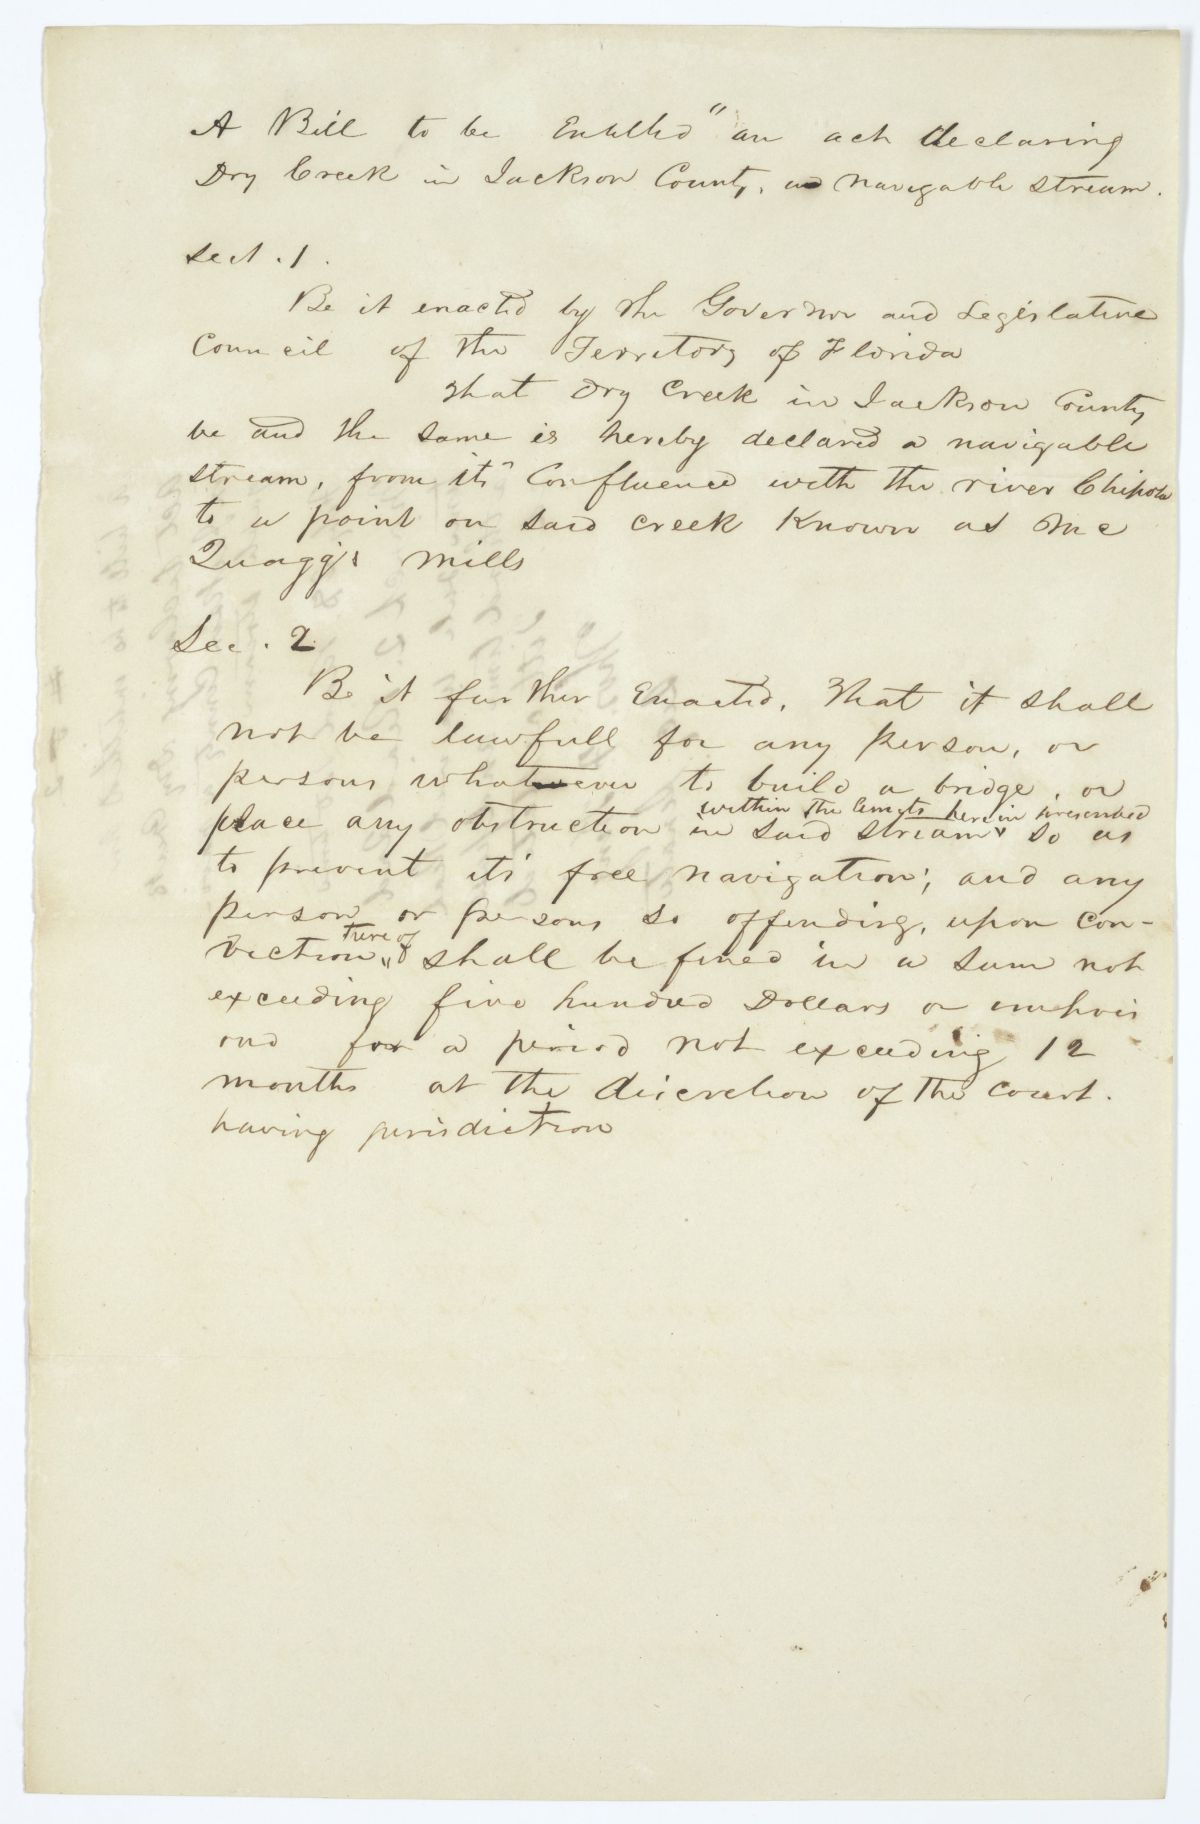 A Bill to be Entitled "an act declaring
Dry Creek in Jackson County, a navigable stream.
Sect. 1.
Be it enacted by the Governor and Legislative
Council of the Territory of Florida
That Dry Creek in Jackson County
be and the same is hereby declared a navigable
stream, from its confluence with the river Chipola
to a point on said creek known as Mc
Quagg's mills
Sec. 2
Be it further Enacted, That it shall
not be lawfull for any person, or
persons whatever to build a bridge, or
within the limits herein prescribed
place any obstruction in said stream so as
to prevent it's free navigation; and any
person or persons so offending, upon con-
there of
viction, shall be fined in a sum not
exceeding five hundred Dollars or impris
ond for a period not exceeding 12
months at the discretion of the court.
having jurisdiction